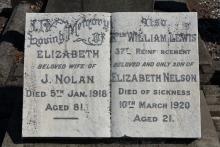 In Loving Memory of
ELIZABETH
BELOVED WIFE OF
J. NOLAN
DIED 5TH JAN. 1918
AGED 81
Also
WILLIAM LEWIS
37TH REINFORCEMENT
BELOVED AND ONLY SON OF
ELIZABETH NELSON
DIED OF SICKNESS
10TH MARCH 1920
AGED 21.